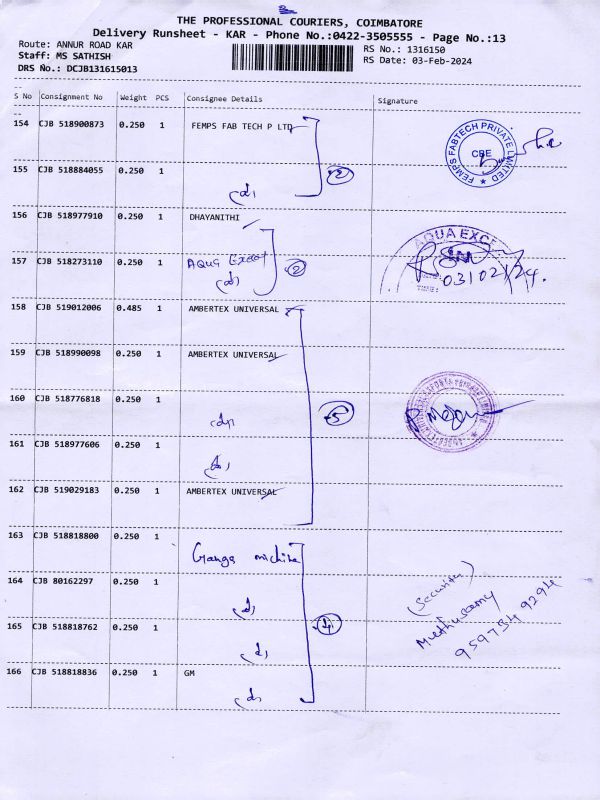 THE PROFESSIONAL COURIERS, COIMBATORE
Delivery Runsheet - KAR - Phone No.:0422-3505555 - Page No.:13
Route: ANNUR ROAD KAR
RS No.: 1316150
Staff: MS SATHISH
RS Date: 03-Feb-2024
DRS No.: DCJB131615013
S No Consignment No Weight PCS Consignee Details Signature
154 CJB 518900873 0.250 1 FEMPS FAB TECH P LTD
FEMPS FABTECH PRIVATE LIMITED
CBE
155 CJB 518884055 0.250 1
(d) 2
156 CJB 518977910 0.250 1 DHAYANITHI
AQUA EXCE
157 CJB 518273110 0.250 1 Aqua Excel
(d) 2
03/02/24.
158 CJB 519012006 0.485 1 AMBERTEX UNIVERSAL
159 CJB 518990098 0.250 1 AMBERTEX UNIVERSAL
160 CJB 518776818 0.250 1
5
161 CJB 518977606 0.250 1
162 CJB 519029183 0.250 1 AMBERTEX UNIVERSAL
163 CJB 518818800 0.250 1
Ganga michine
164 CJB 80162297 0.250 1
(d)
(Security)
Muthusamy
165 CJB 518818762 0.250 1
(d) 4
166 CJB 518818836 0.250 1 GM
(d)